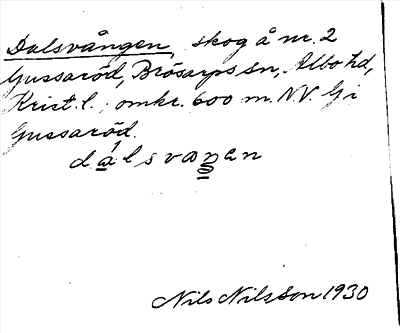 Dalsvången, skog å nr. 2
Gussaröd, Brösarps sn, Albo hd,
Krist. l. omkr. 600 m. N.V. G i
Gussaröd.
dálsvaŋen
Nils Nilsson 1930